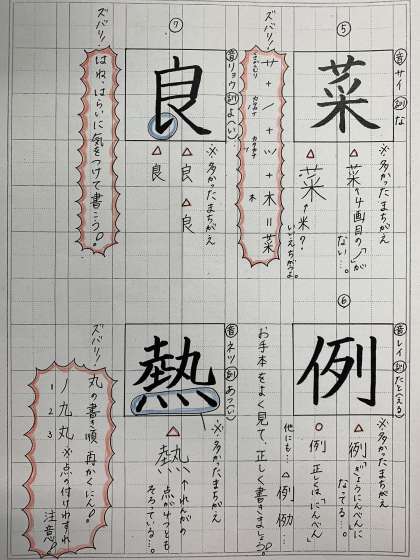 ⑤
音サイ 訓な
菜
※多かったまちがえ
△菜←4画目の「ノ」が
ない…。
△菜↑米?
いいえちがうよ。
ズバリ!
サ+ノ+ツ+木=菜
くさかんむり
カタカナ
カタカナ
木
⑥
音レイ 訓たと(える)
例
※多かったまちがえ
△例「ぎょうにんべん」に
なってる…。
○例 正しくは「にんべん」
他にも…△例 例
お手本をよく見て、正しく書きましょう。
⑦
音リョウ 訓よ(い)
良
※多かったまちがえ
△良 △良
△良
ズバリ!
はね、はらいに気をつけて書こう。
音ネツ 訓あつ(い)
熱
※多かったまちがえ
△熱←れんがの
点が4つとも
そろっている…。
ズバリ!
丸の書き順 再かくにん。
ノ九丸 ※点の付けわすれ
注意
1 2 3